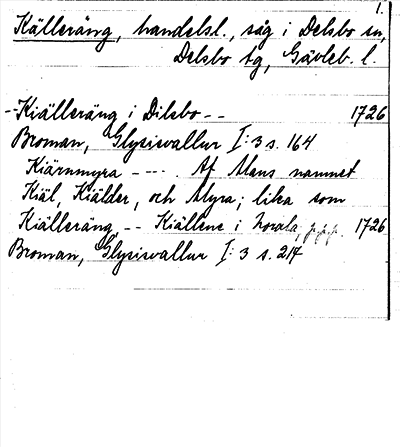 1.
Källeräng, handelsl., såg i Delsbo sn,
Delsbo tg, Gävleb. l.
--Kiälleräng i Dilsbo-- 1726
Broman, Glysisvallur I:3 s. 164
Kiärnmyra ---- . Af Mans namnet
Kiäl, Kiälder, och Myra; lika som
Kiälleräng, -- Kiällene i Norala, 1726
Broman, Glysisvallur I: 3 s. 217